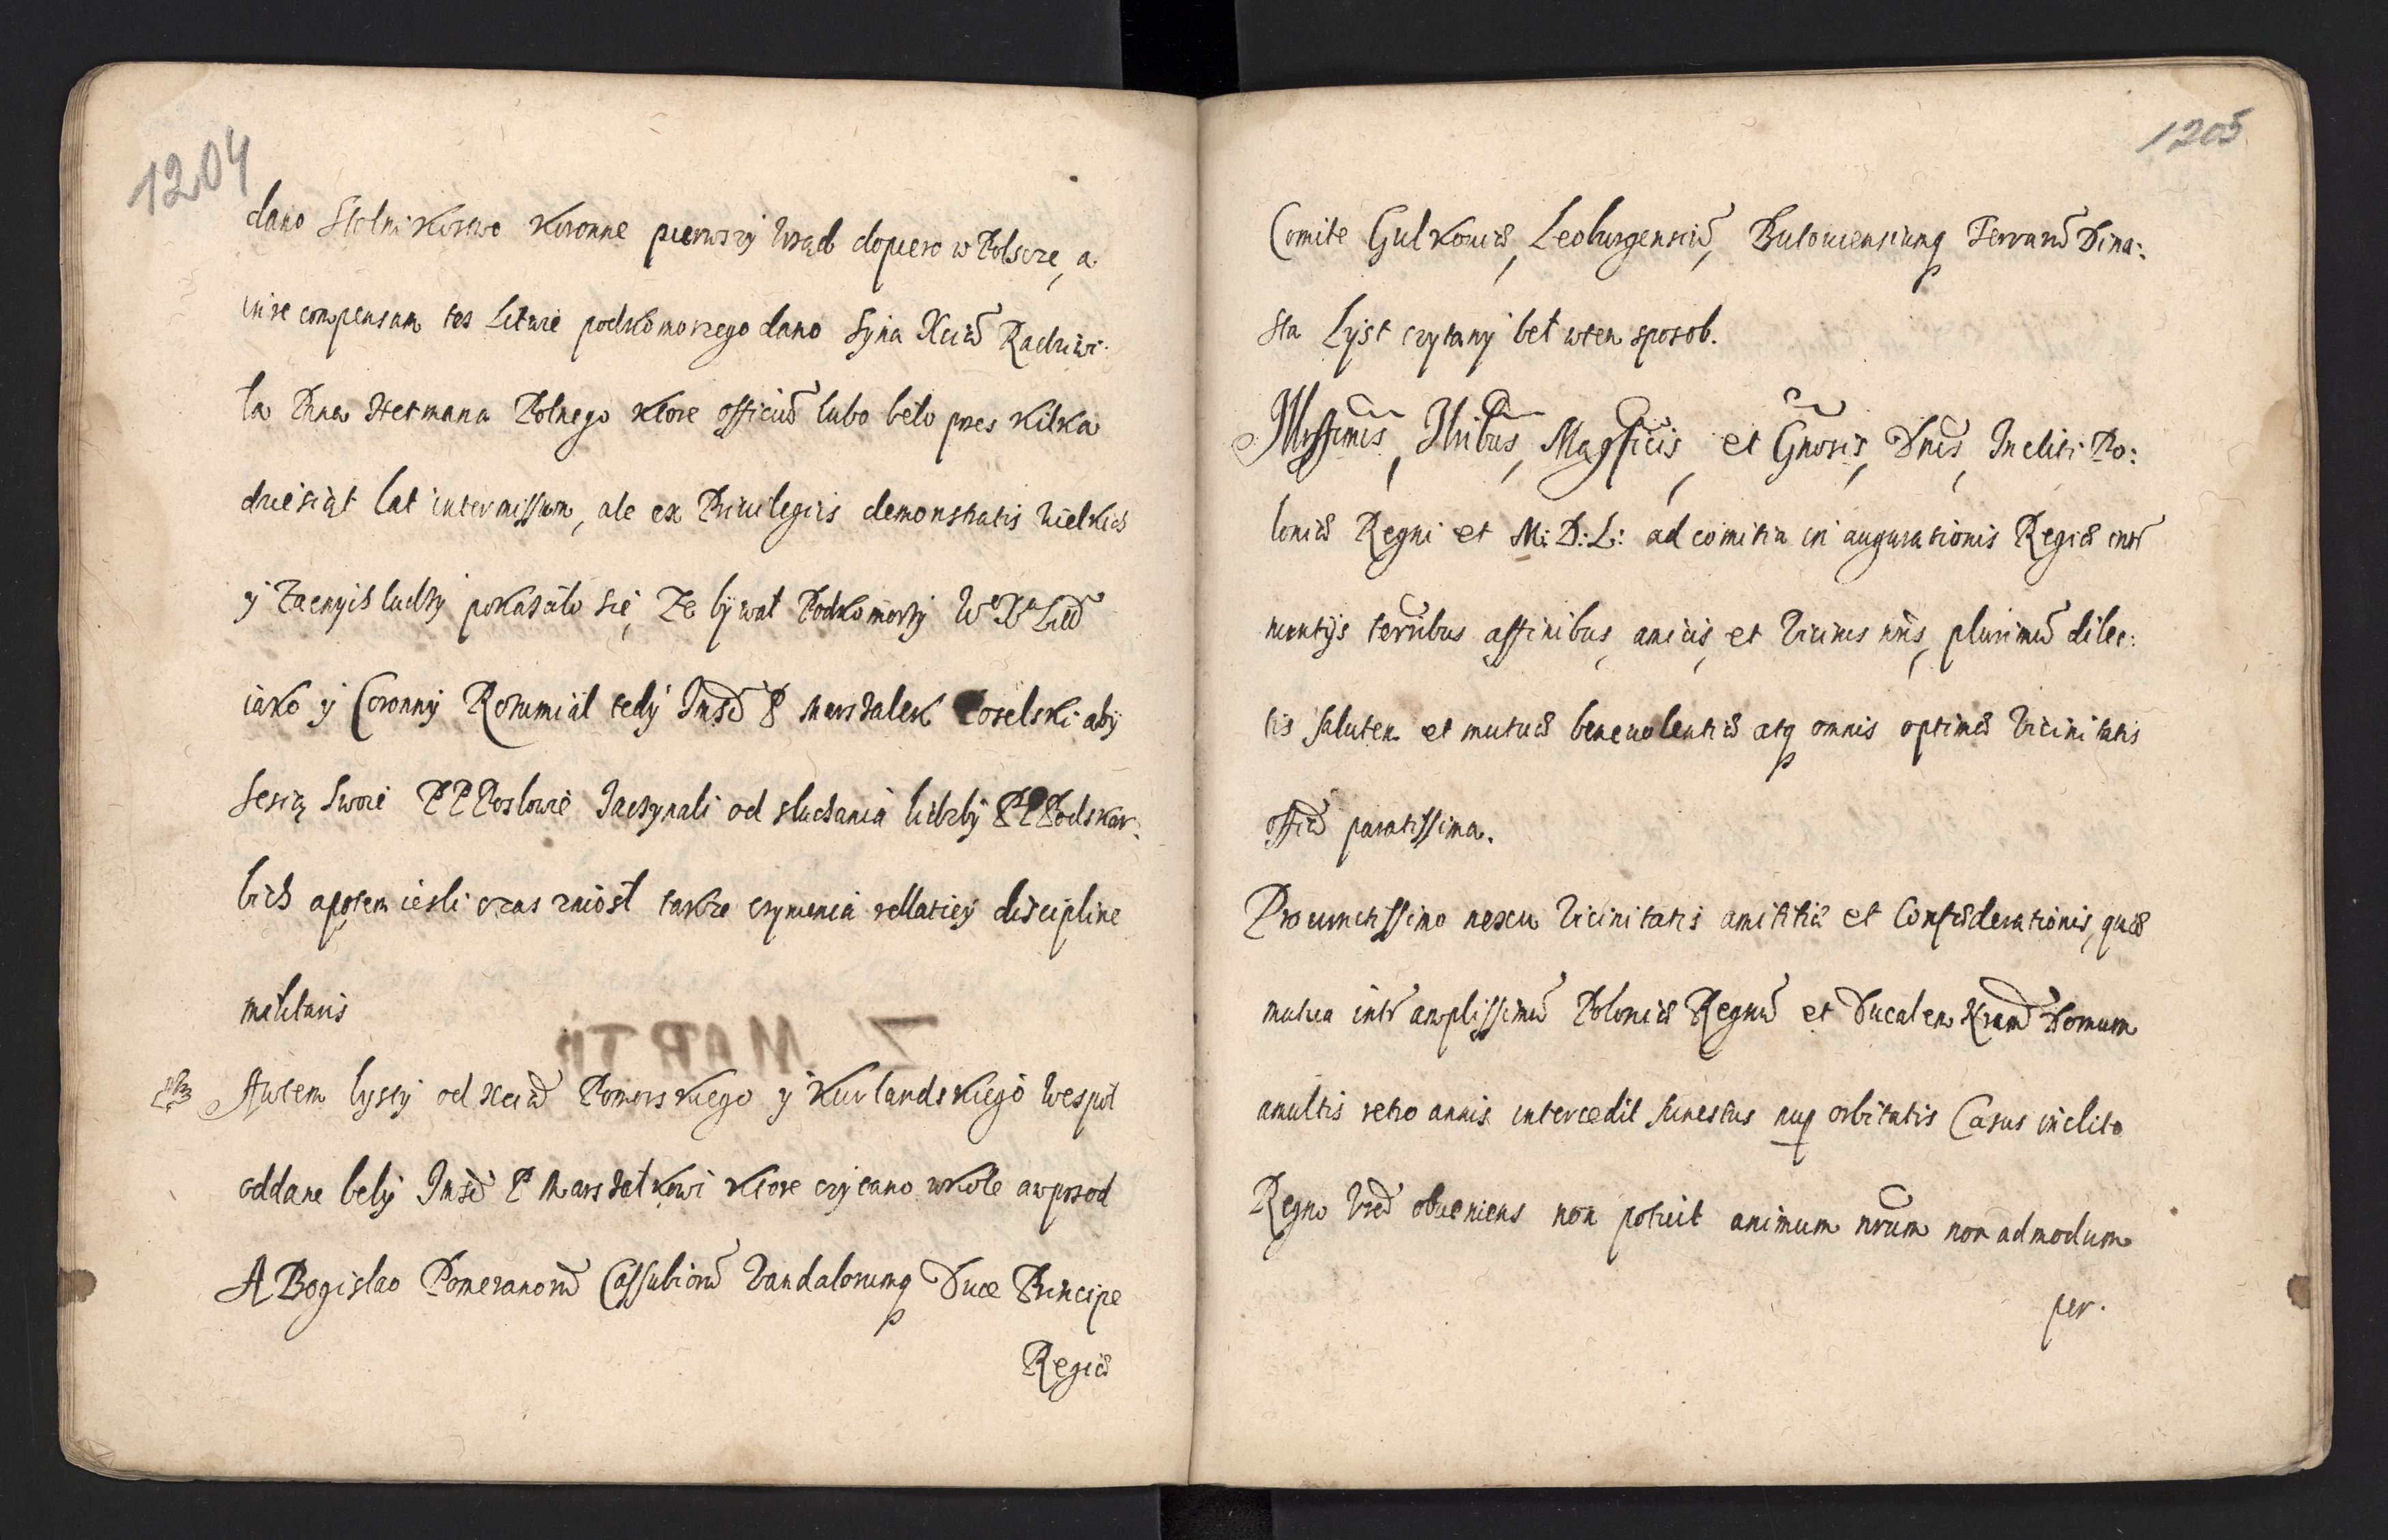 1204
dano Stolnikostwo Koronne pierwszy Vrząd dopiero w Polscze, a
in re compensam tes Litwie podkomorzego dano Syna Xcia Radziwi-
ła Pana Hetmana Polnego ktore officiũ lubo beło przes kilka
dziesiąt lat intermissum, ale ex Priuilegiis demonstratis wielkich
ÿ Zacnÿch ludzÿ pokazało się, Ze bÿwał Podkomorzÿ W X Litt
iako ÿ Coronnÿ Rozumiał tedÿ Jmsć P Marszalek Poselski abÿ
Sesią Swoie PP Posłowie Zaczÿnali od słuchania liczbÿ PP Podskar:
bich a potem iesli czas zniosł także czÿnienia rellatieÿ discipline
militaris
Z MARTII
Awtem lystÿ od Xcia Pomorskiego ÿ Kurlandskiego wespoł
oddane belÿ Jmsci P Marszałkowi ktore czÿtano w kole a wprzod
A Bogislao Pomeranorũ Cassubiorũ Vandalorumq Duce Principe
Regiæ
1205
Comite Gutkouiæ, Leoburgensiũ, Butouiensiumq Terrarũ Dina:
sta Lÿst czÿtanÿ beł w ten sposob.
Illrissimis, Illribus, Magficis, et Gnosis, Dnis, Incliti Po:
loniæ Regni et M: D: L: ad comitia in augurationis Regiæ
nuntÿs terribus affinibus, amicis, et Vicinis nris, plurimũ dilec:
tis salutem et mutuæ beneuolentiæ atq omnis optimæ Vicinitatis
officia paratissima.
Pro iunctissimo nexu Vicinitatis amititiæ et Confæderationis, quæ
mutua intr amplissimũ Poloniæ Regnũ et Ducalem Nram Domum
a multis retro annis intercedit funestus nup orbitatis Casus inclito
Regno Vro obueniens non potuit animum nrum non admodum
per.